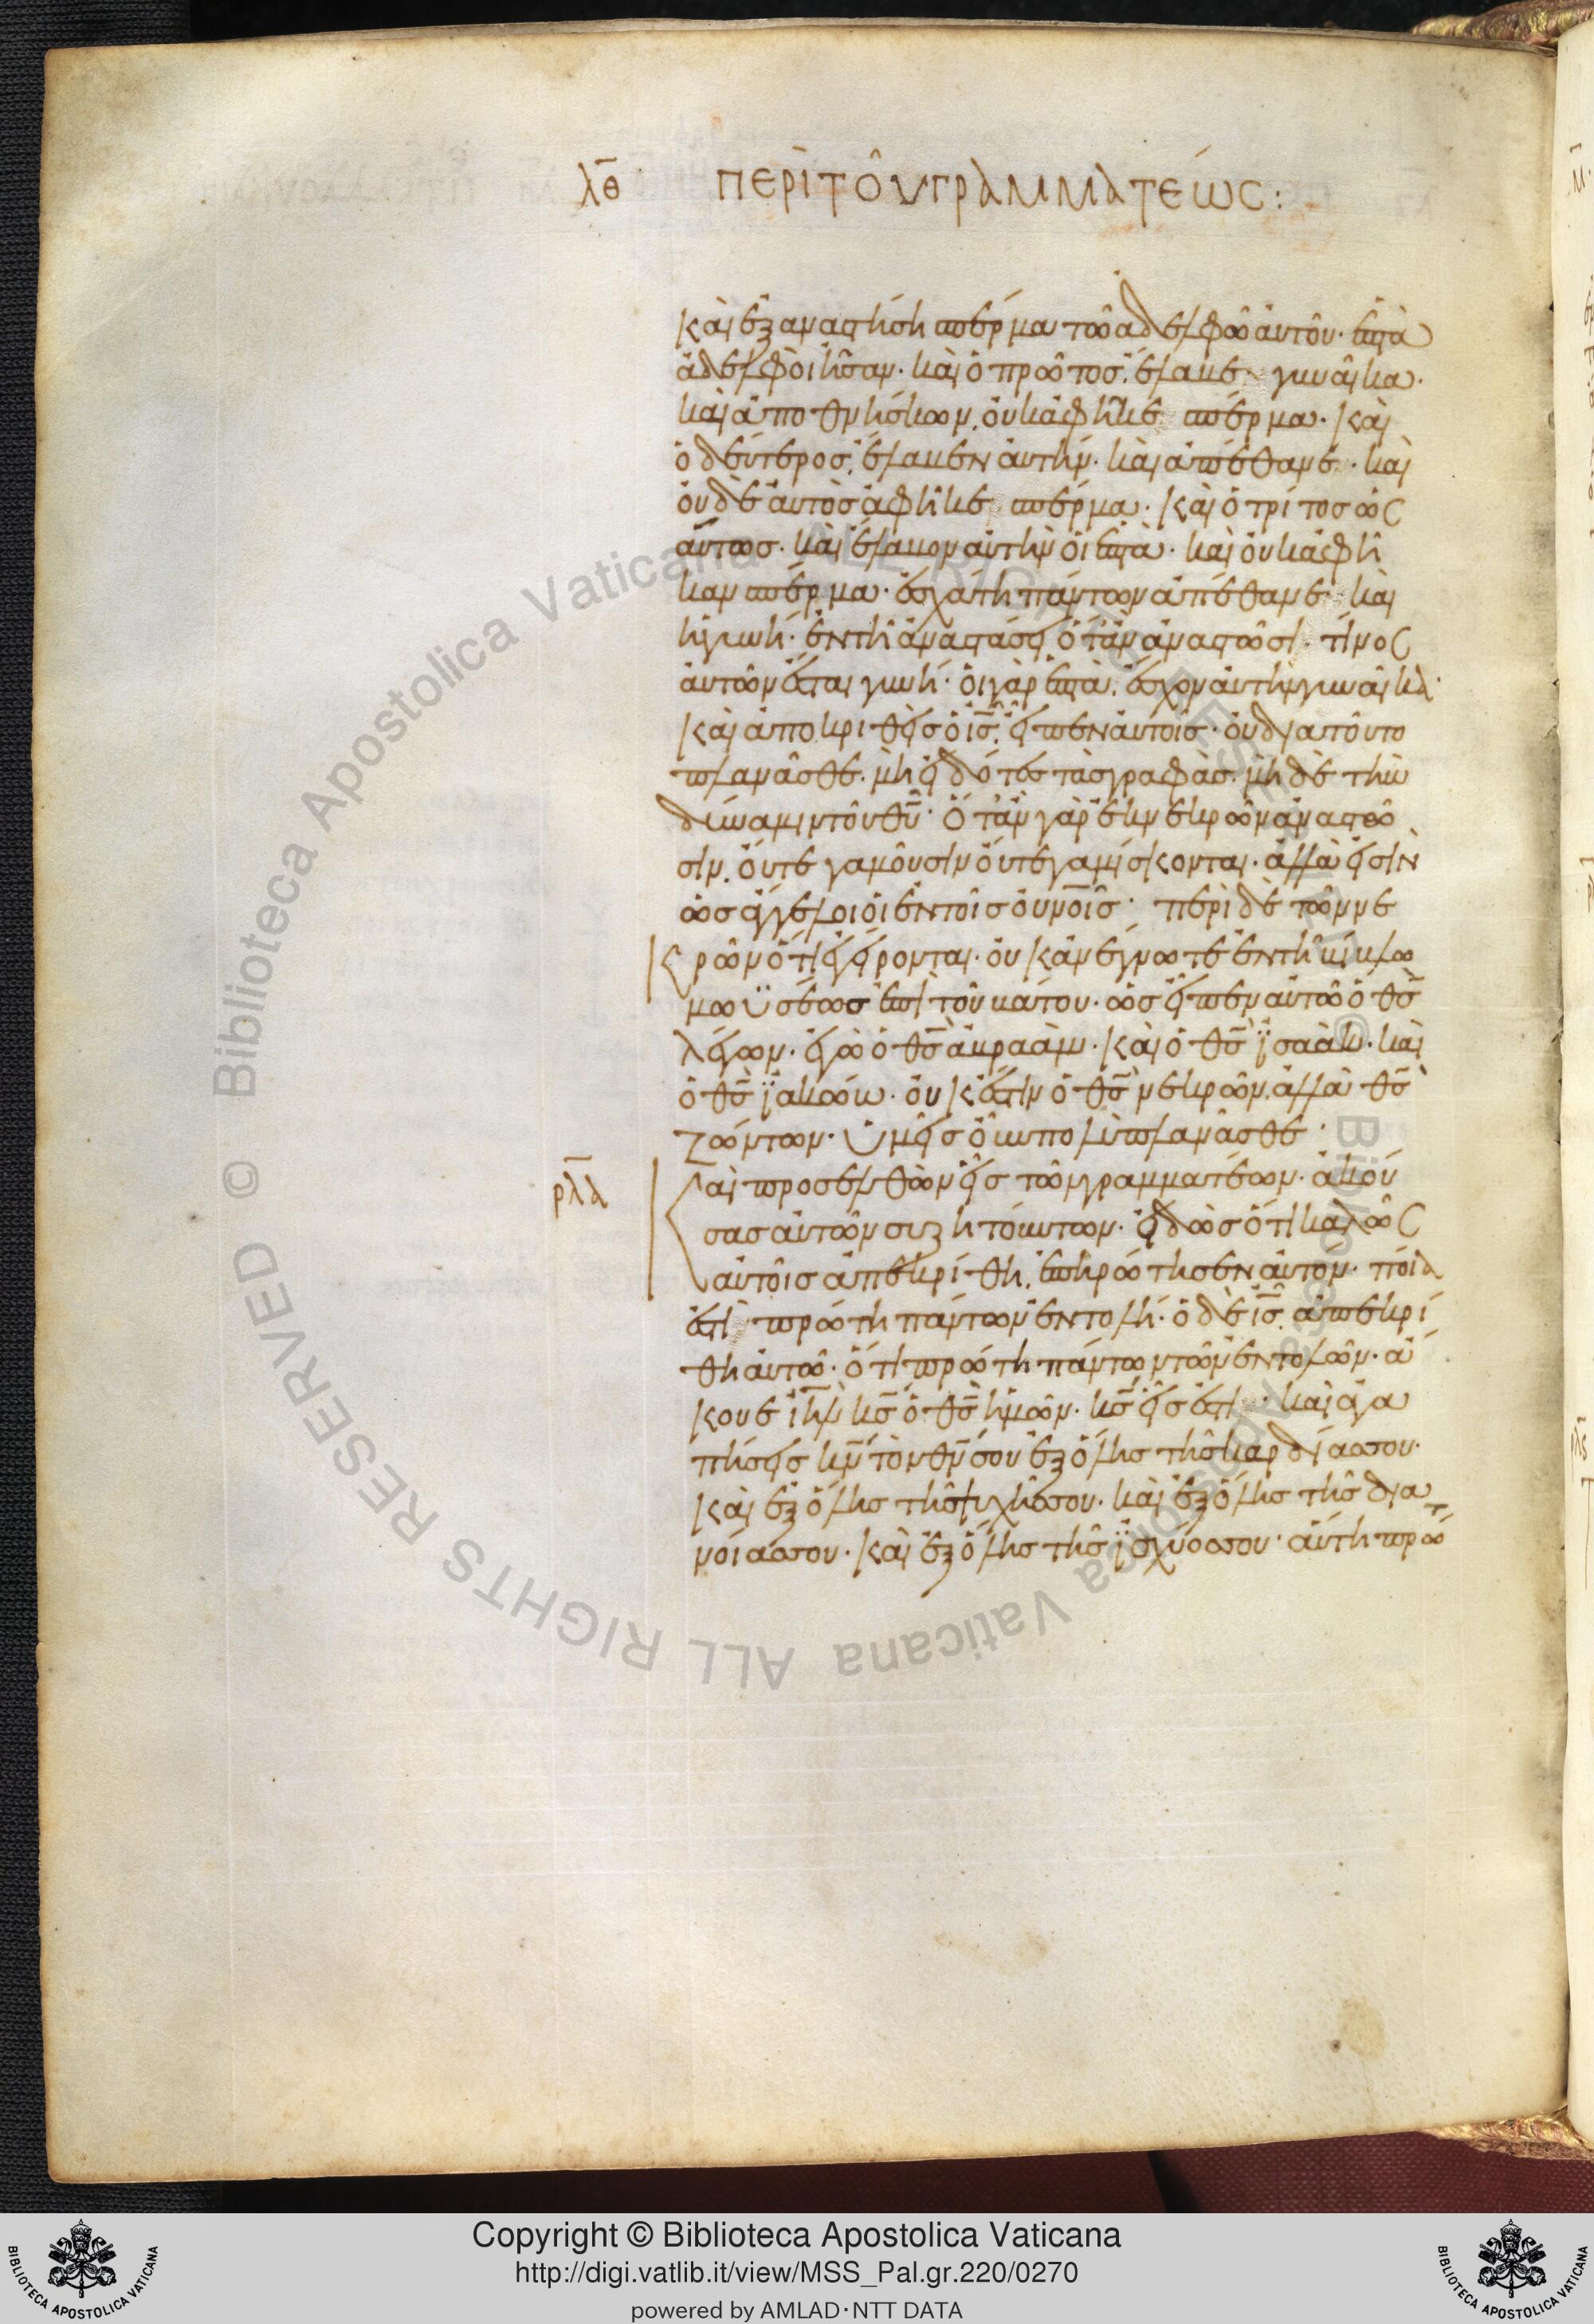 λθ ΠΕΡῚ ΤΟΥ͂ ΓΡΑΜΜΑΤΈΩΣ:
καὶ ἐξαναστήση σπέρμα τῶ ἀδελφῶ ἀυτοῦ· ἑπτὰ
ἀδελφοὶ ἦσαν· καὶ ὁ πρῶτος. ἔλαβε γυναῖκα·
καὶ ἀποθνήσκων. οὐκ ἀφῆκε σπέρμα· καὶ
ὁ δεύτερος. ἔλαβεν ἀυτήν· καὶ ἀπέθανε· καὶ
ὀυδὲ ἀυτὸς ἀφῆκε σπέρμα· καὶ ὁ τρίτος ὡσ
αύτως· καὶ ἔλαβον ἀυτὴν ὁι ἑπτὰ· καὶ ὀυκ ἀφῆ
καν σπέρμα· ἐσχάτη πάντων ἀπέθανε καὶ
ἡ γυνή· ἐν τῆ ἀναστάσει ὅταν ἀναστῶσι· τίνος
ἀυτῶν ἔσται γυνή· ὁι γὰρ ἑπτὰ. ἔσχον ἀυτὴν γυναῖκα·
Καὶ ἀποκριθεὶς ὁ ι̅ς̅. εἶπεν ἀυτοῖς· ὀυ διατοῦτο
πλανᾶσθε. μὴ εἰδότες τὰς γραφὰς. μὴ δὲ τὴν
δύναμιν τοῦ θ̅υ̅· Ὅταν γὰρ ἐκ νεκρῶν ἀναστῶ
σιν. ὄυτε γαμοῦσιν ὄυτε γαμίσκονται· ἀλλὰ ἐισὶν
ὡς ἄγγελοι ὁι ἐν τοῖς ὀυνοῖς· περὶ δὲ τῶν νε
κρῶν ὅτι ἐγείρονται· ὀυκ ἀνέγνωτε ἐν τῆ βίβλω
μωϋσέως ἐπὶ τοῦ βάτου· ὡς εἶπεν ἀυτῶ ὁ θ̅ς̅
λέγων· ἐγὼ ὁ θ̅ς̅ ἀβραὰμ· καὶ ὁ θ̅ς̅ ϊσαὰκ· καὶ
ὁ θ̅ς̅ ϊακώβ· ὀυκ ἔστιν ὁ θ̅ς̅ νεκρῶν. ἀλλὰ θ̅ς̅
ζώντων· ὑμεῖς ὀῦν πολὺ πλανᾶσθε·
ρλα Καὶ προσελθὼν εἷς τῶν γραμματέων· ἀκού
σας ἀυτῶν συζητούντων· εἰδὼς ὅτι καλῶς
ἀυτοῖς ἀπεκρίθη. ἐπηρώτησεν ἀυτόν· ποία
ἐστὶ πρώτη πάντων ἐντολή· ὁ δὲ ι̅ς̅ ἀπεκρί
θη ἀυτῶ· ὅτι πρώτη πάντων τῶν ἐντολῶν· ἄ
κουε ι̅η̅λ̅ κ̅ς̅ ὁ θ̅ς̅ ἡμῶν. κ̅ς̅ εἷς ἐστι· καὶ ἀγα
πήσεις κ̅ν̅ τὸν θ̅ν̅ σου ἐξ ὅλης τῆς καρδίας σου·
καὶ ἐξ ὅλης τῆς ψυχῆς σου· καὶ ἐξ ὅλης τῆς δια
νοίας σου· καὶ ἐξ ὅλης τῆς ϊσχύος σου· ἁύτη πρώτ
© Biblioteca Apostolica Vaticana ALL RIGHTS RESERVED
Copyright © Biblioteca Apostolica Vaticana
http://digi.vatlib.it/view/MSS_Pal.gr.220/0270
powered by AMLAD·NTT DATA
BIBLIOTECA APOSTOLICA VATICANA
BIBLIOTECA APOSTOLICA VATICANA